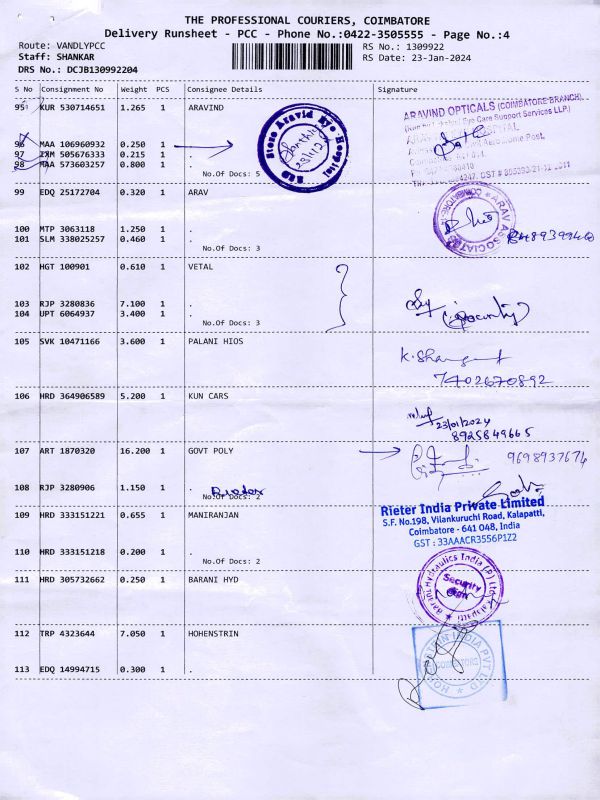 THE PROFESSIONAL COURIERS, COIMBATORE
Delivery Runsheet - PCC - Phone No.:0422-3505555 - Page No.:4
Route: VANDLYPCC RS No.: 1309922
Staff: SHANKAR RS Date: 23-Jan-2024
DRS No.: DCJB130992204
S No Consignment No Weight PCS Consignee Details Signature
95 KUR 530714651 1.265 1 ARAVIND
96 MAA 106960932 0.250 1 .
97 505676333 0.215 1 .
98 MAA 573603257 0.800 1 .
No.Of Docs: 5
Store Aravind Eye Hospital
ARAVIND OPTICALS (COIMBATORE BRANCH)
99 EDQ 25172704 0.320 1 ARAV
100 MTP 3063118 1.250 1 .
101 SLM 338025257 0.460 1 .
No.Of Docs: 3
102 HGT 100901 0.610 1 VETAL
103 RJP 3280836 7.100 1 .
104 UPT 6064937 3.400 1 .
No.Of Docs: 3
105 SVK 10471166 3.600 1 PALANI HIOS
7402670892
106 HRD 364906589 5.200 1 KUN CARS
23/01/2024
8925849665
107 ART 1870320 16.200 1 GOVT POLY
9698937674
108 RJP 3280906 1.150 1 .
No.Of Docs: 2
Rieter India Private Limited
S.F. No.198, Vilankuruchi Road, Kalapatti,
Coimbatore - 641 048, India
GST : 33AAACR3556P1Z2
109 HRD 333151221 0.655 1 MANIRANJAN
110 HRD 333151218 0.200 1 .
No.Of Docs: 2
111 HRD 305732662 0.250 1 BARANI HYD
Barani Hydraulics India (P) Ltd
Security
112 TRP 4323644 7.050 1 HOHENSTRIN
113 EDQ 14994715 0.300 1 .